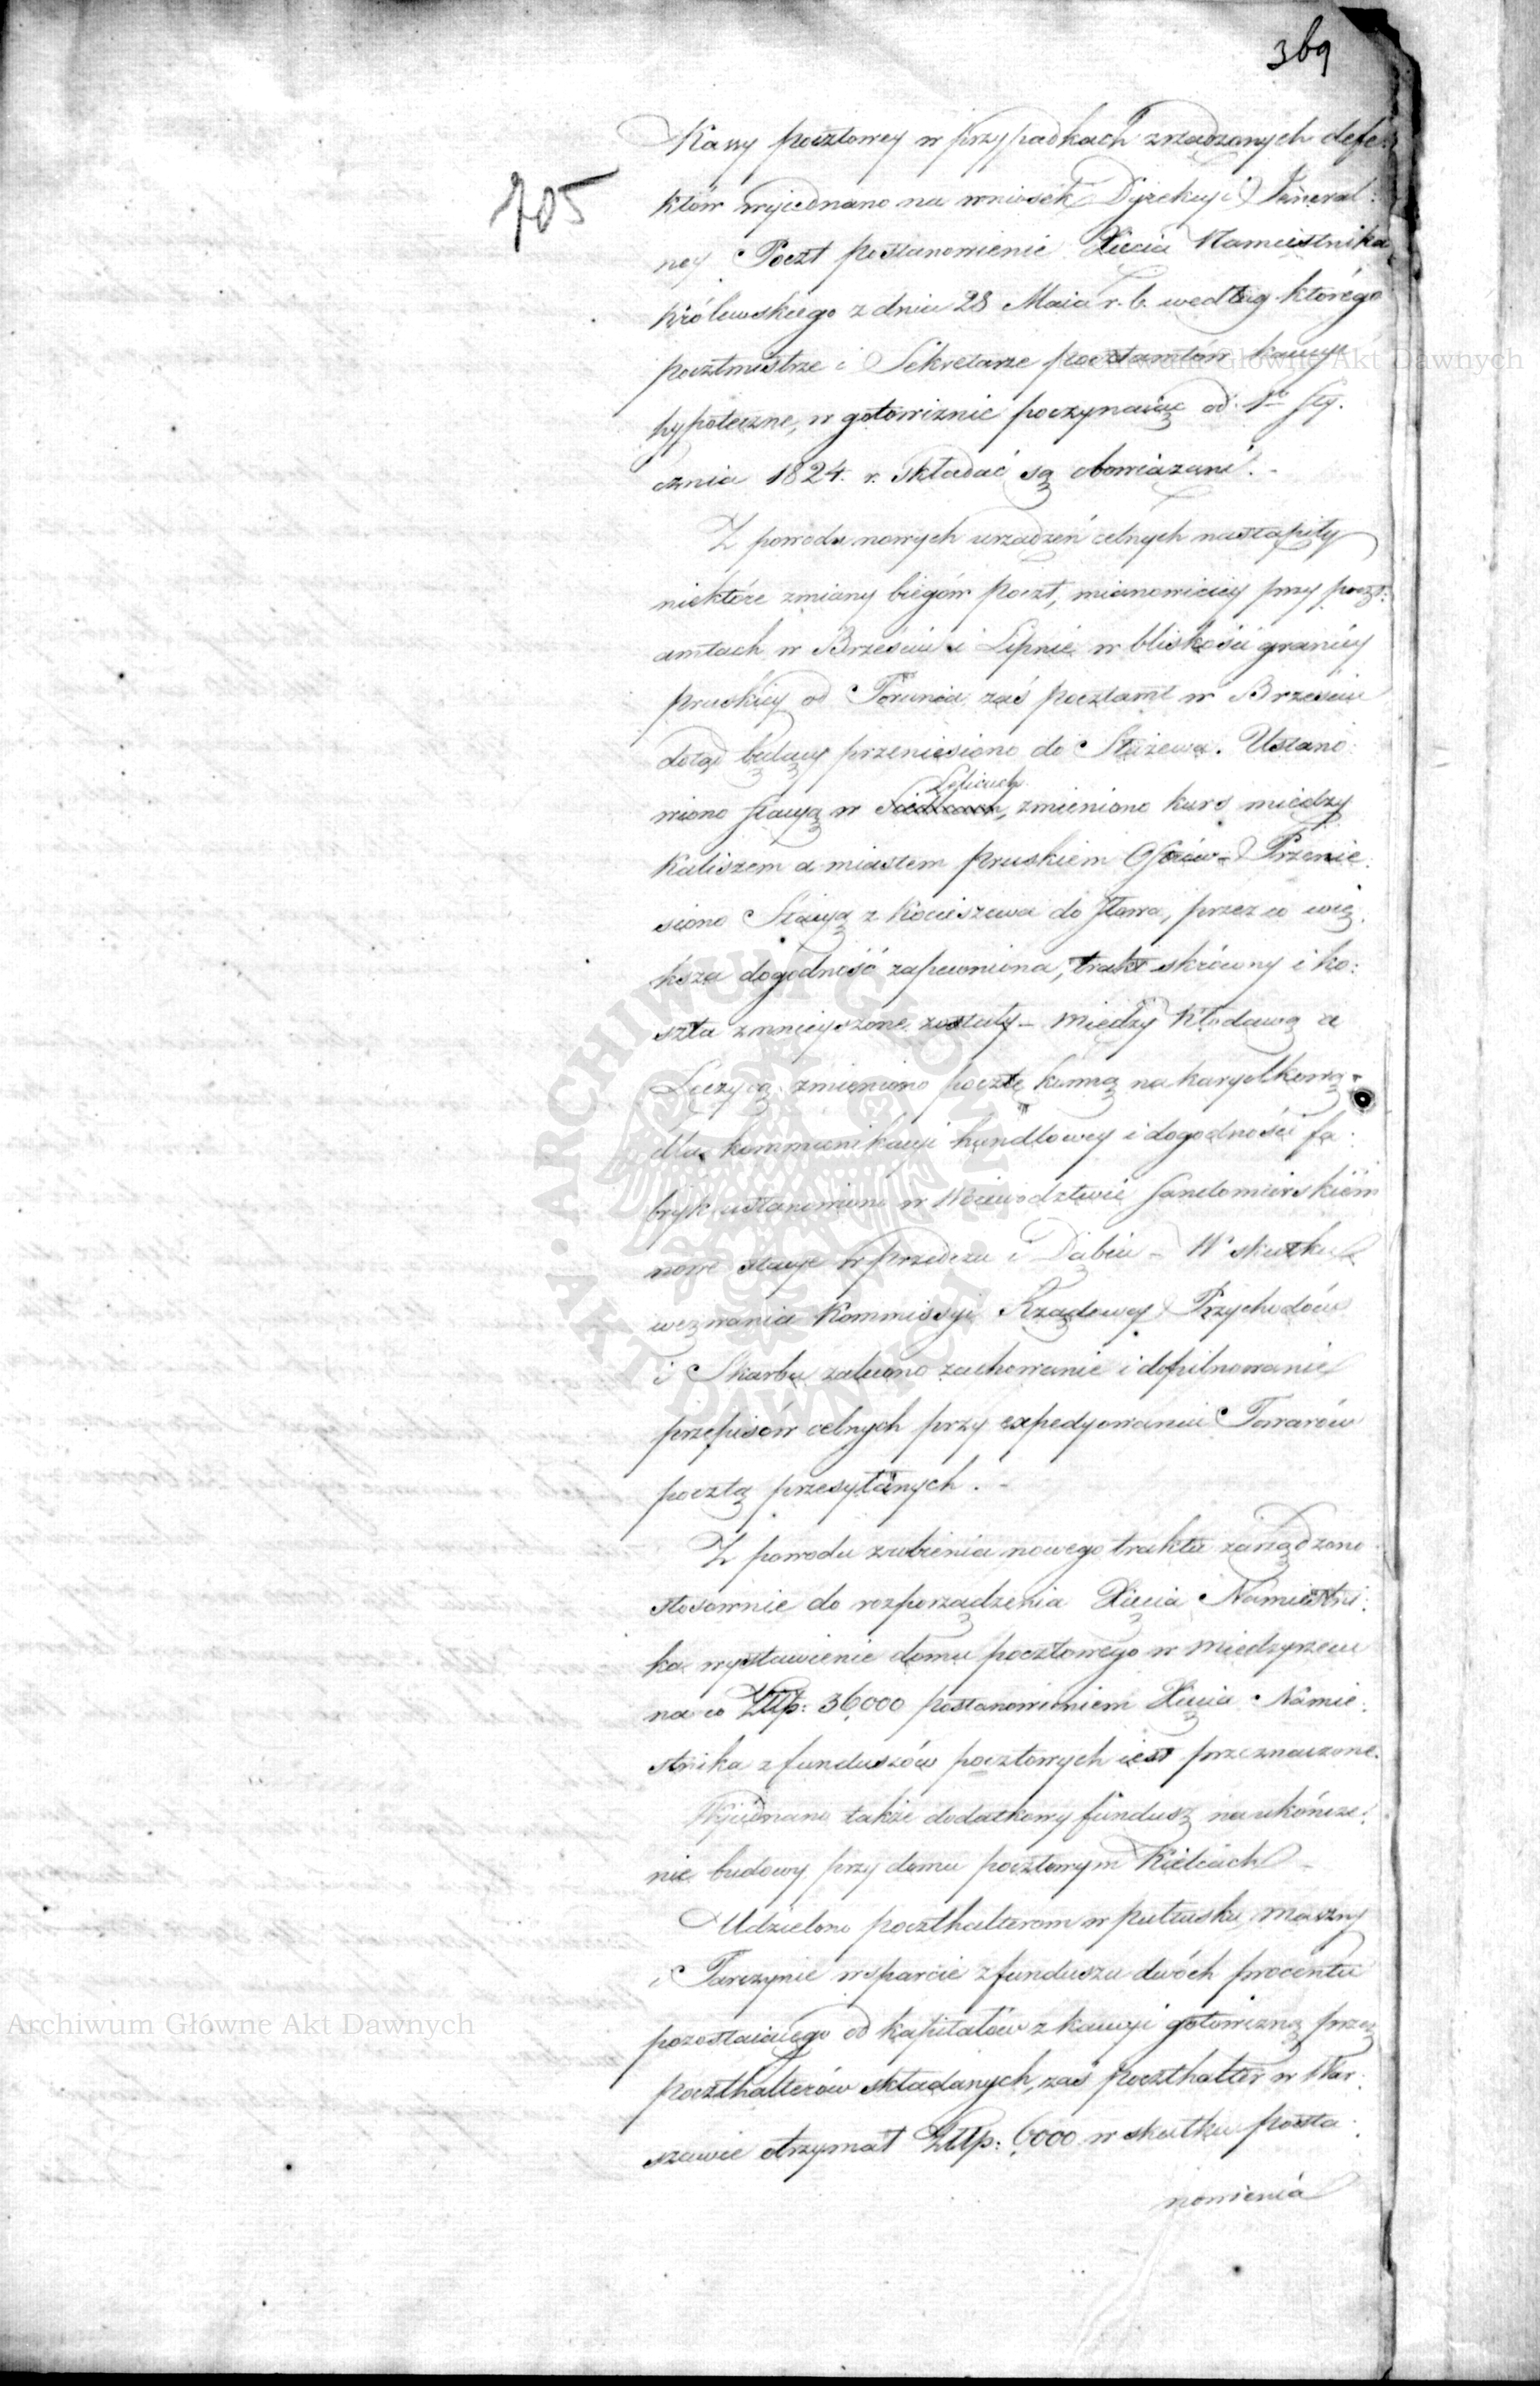 369
705
Kassy pocztowey w przypadkach zrządzonych defe:
któw wyiednano na wniosek Dyrekcyi Jeneral:
ney Poczt postanowienie Xięcia Namiestnika
Królewskiego z dnia 28 Maia r. b. według którego
pocztmistrze i Sekretarze pocztamtów kaucye
hypoteczne, w gotowiznie poczynaiąc od 1go Sty.
cznia 1824. r. składać są obowiązani. -
Z powodu nowych urządzeń celnych nastąpiły
niektóre zmiany biegów poczt, mianowiciey przy poczt:
amtach w Brześciu i Lipnie w bliskości granicy
pruskiey od Torunia zaś pocztamt w Brześciu
dotąd będący przeniesiono do Służewa. Ustano:
Leliczach
wiono stacyą w zmieniono kurs między
Kaliszem a miastem pruskiem Ostrów - Przenie:
siono Stacyą z Kociszewa do Stawa, przez co wię:
ksza dogodność zapewniona, trakt skrócony i ko:
szta zmnieyszone zostały - między Kłodawą a
Łęczycą zmieniono pocztę konną na karyolkową -
dla kommunikacyi handlowey i dogodności fa:
bryk ustanowiono w Woiewodztwie Sandomierskiem
nowe stacye w Przedczu i Dąbiu - W skutku
wezwania Kommissyi Rządowey Przychodów
i Skarbu zalecono zachowanie i dopilnowanie
przepisów celnych przy expedyowaniu Towarów
pocztą przesyłanych. -
Z powodu zrobienia nowego traktu zarządzono
stosownie do rozporządzenia Xięcia Namiestni:
ka wystawienie domu pocztowego w Międzyrzecu
na co Złtp: 36,000 postanowieniem Xięcia Namie:
stnika z funduszów pocztowych iest przeznaczone.
Wyiednano także dodatkowy fundusz na ukończe:
nie budowy przy domu pocztowym Kielcach -
Udzielono poczthalterom w Pułtusku, Maszny
i Tarczynie wsparcie z funduszu dwóch procentu
pozostaiącego od kapitałów z kaucyi gotowizną przez
poczthalterów składanych, zaś poczthalter w War:
szawie otrzymał Złtp: 6000 w skutku posta:
nowienia
Archiwum Główne Akt Dawnych
Archiwum Główne Akt Dawnych
ARCHIWUM GŁÓWNE AKT DAWNYCH